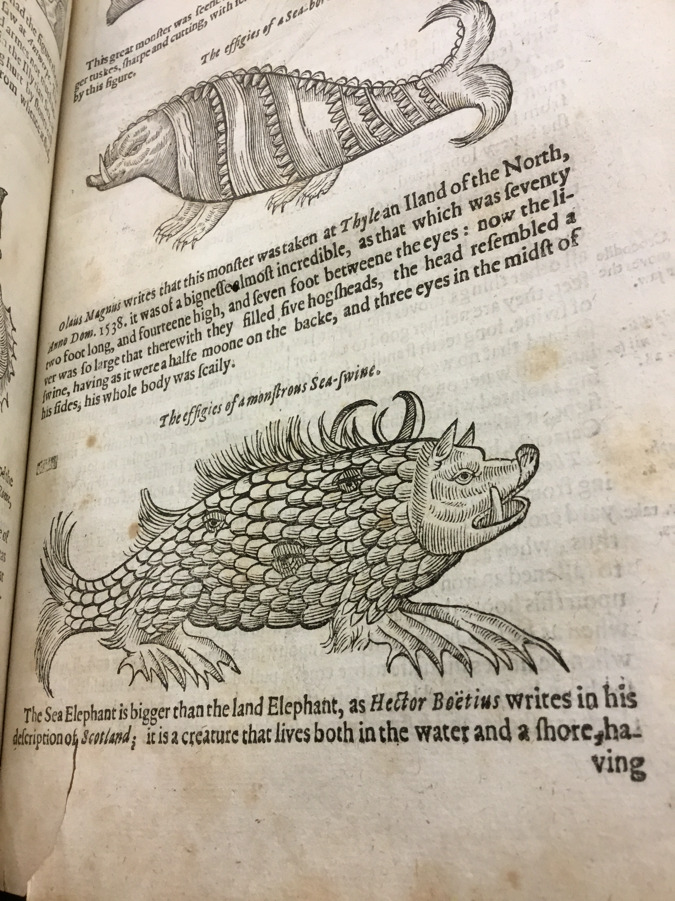 This great monster was seen
ger tuskes, sharpe and cutting, with
by this figure.
The effigies of a Sea-
Olaus Magnus writes that this monster was taken at Thyle an Iland of the North,
Anno Dom. 1538. it was of a bignesse almost incredible, as that which was seventy
two foot long, and fourteene high, and seven foot betweene the eyes: now the li-
ver was so large that therewith they filled five hogsheads, the head resembled a
swine, having as it were a halfe moone on the backe, and three eyes in the midst of
his sides, his whole body was scaily.
The effigies of a monstrous Sea-swine.
The Sea Elephant is bigger than the land Elephant, as Hector Boëtius writes in his
description of Scotland; it is a creature that lives both in the water and a shore, ha-
ving